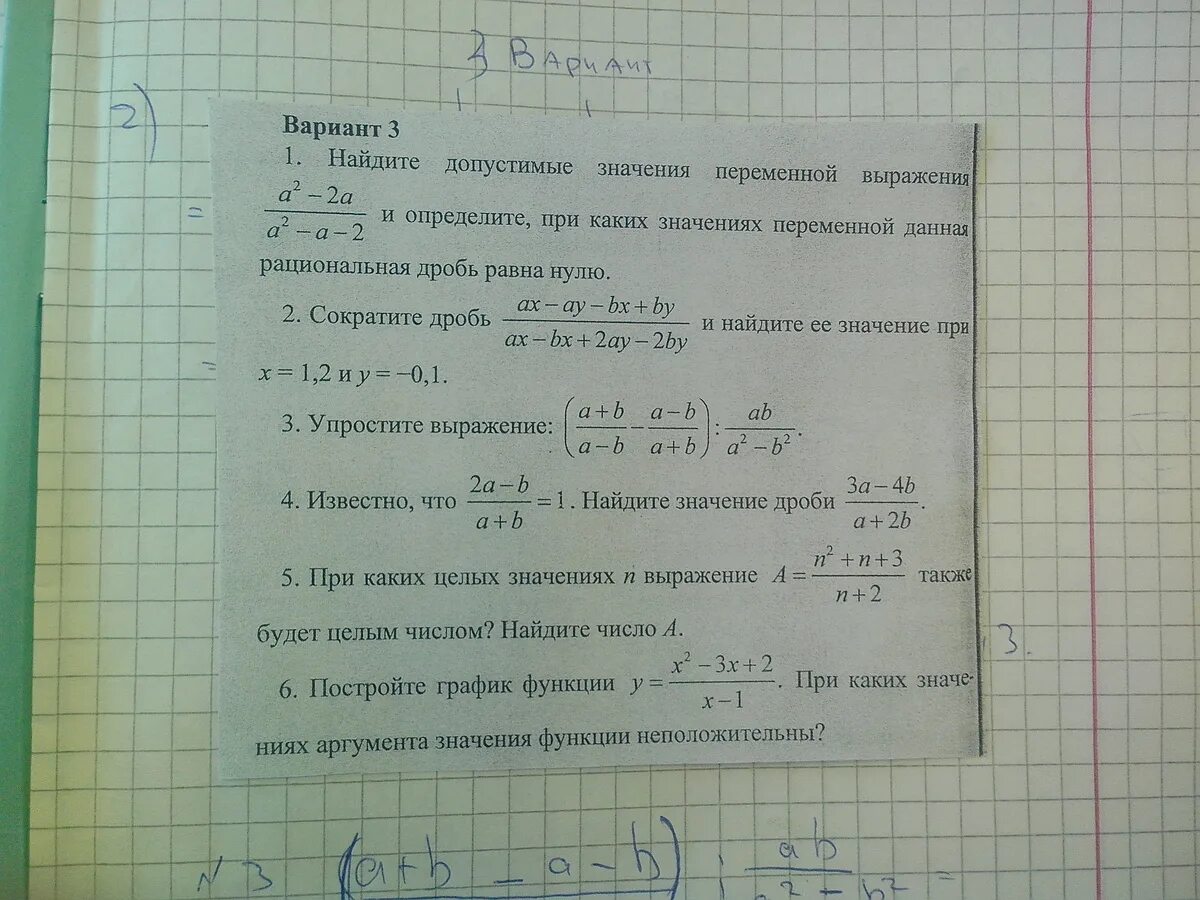 3 Вариант
2)
Вариант 3
1. Найдите допустимые значения переменной выражения
(a² − 2a)/(a² − a − 2) и определите, при каких значениях переменной данная
рациональная дробь равна нулю.
2. Сократите дробь (ax − ay − bx + by)/(ax − bx + 2ay − 2by) и найдите ее значение при
x = 1,2 и y = −0,1.
3. Упростите выражение: ((a + b)/(a − b) − (a − b)/(a + b)) : ab/(a² − b²).
4. Известно, что (2a − b)/(a + b) = 1. Найдите значение дроби (3a − 4b)/(a + 2b).
5. При каких целых значениях n выражение A = (n² + n + 3)/(n + 2) также
будет целым числом? Найдите число A.
3.
6. Постройте график функции y = (x² − 3x + 2)/(x − 1). При каких значе-
ниях аргумента значения функции неположительны?
№ 3 (a+b − a−b) : ab/(a² − b²) =